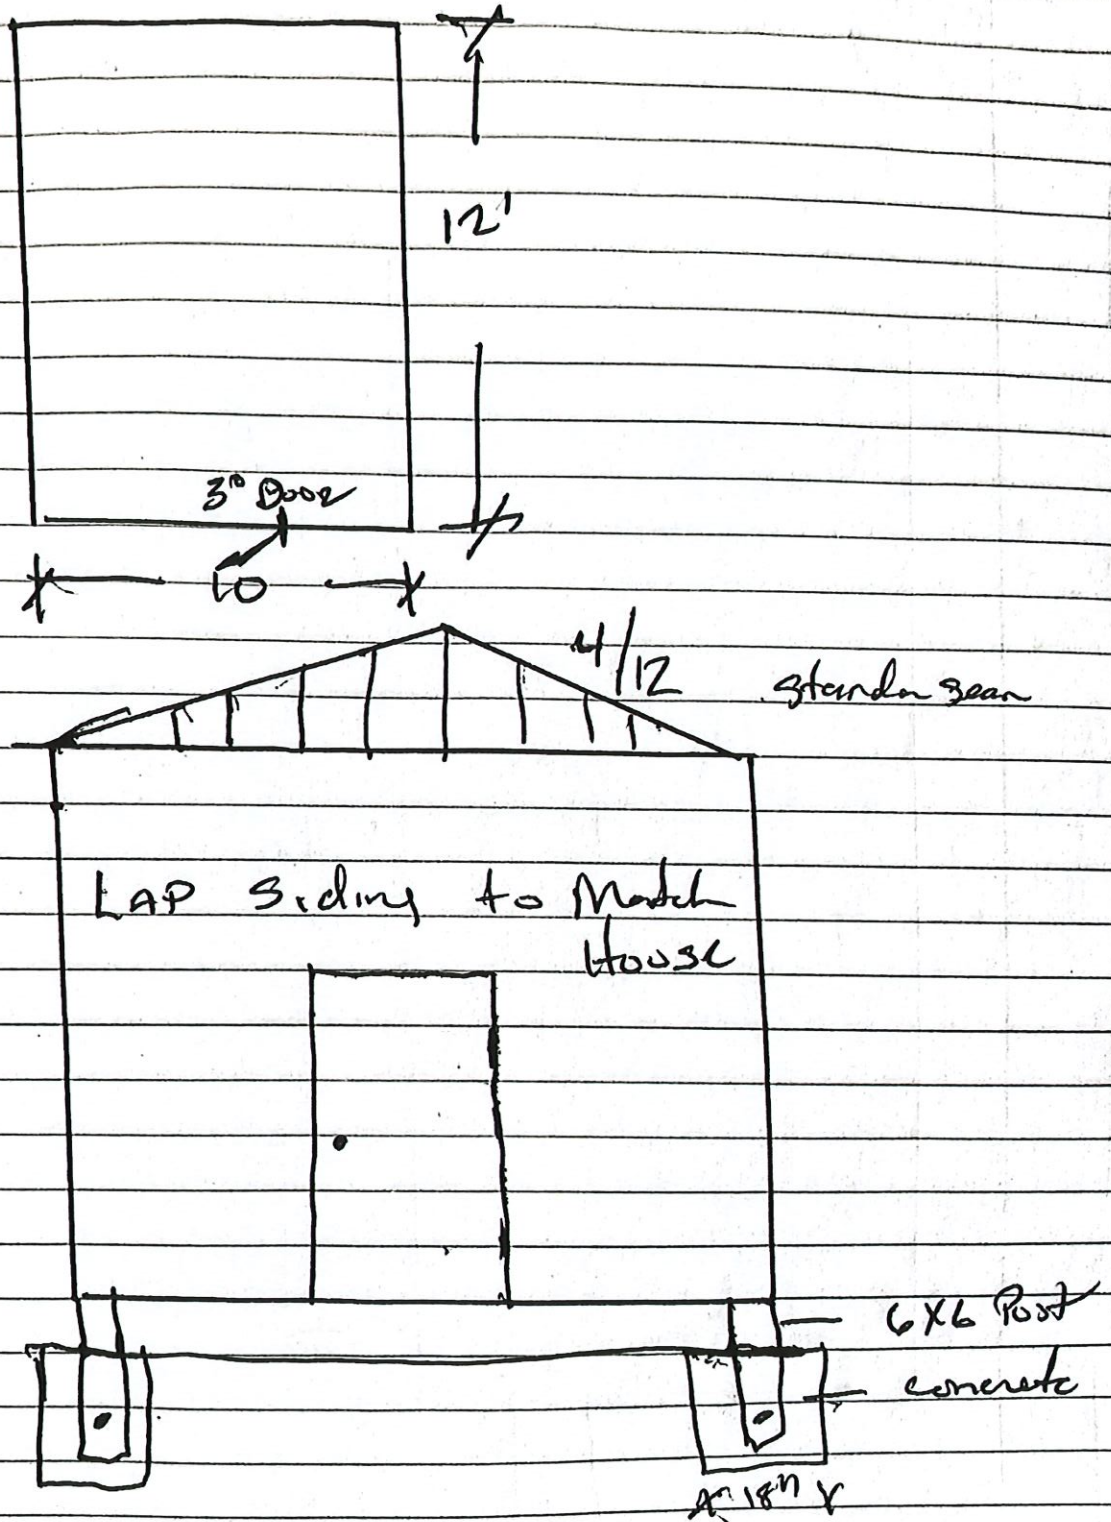 12'
3⁰ Door
10
4/12
Standn seam
LAP Siding to Match
House
6x6 Post
concrete
18"